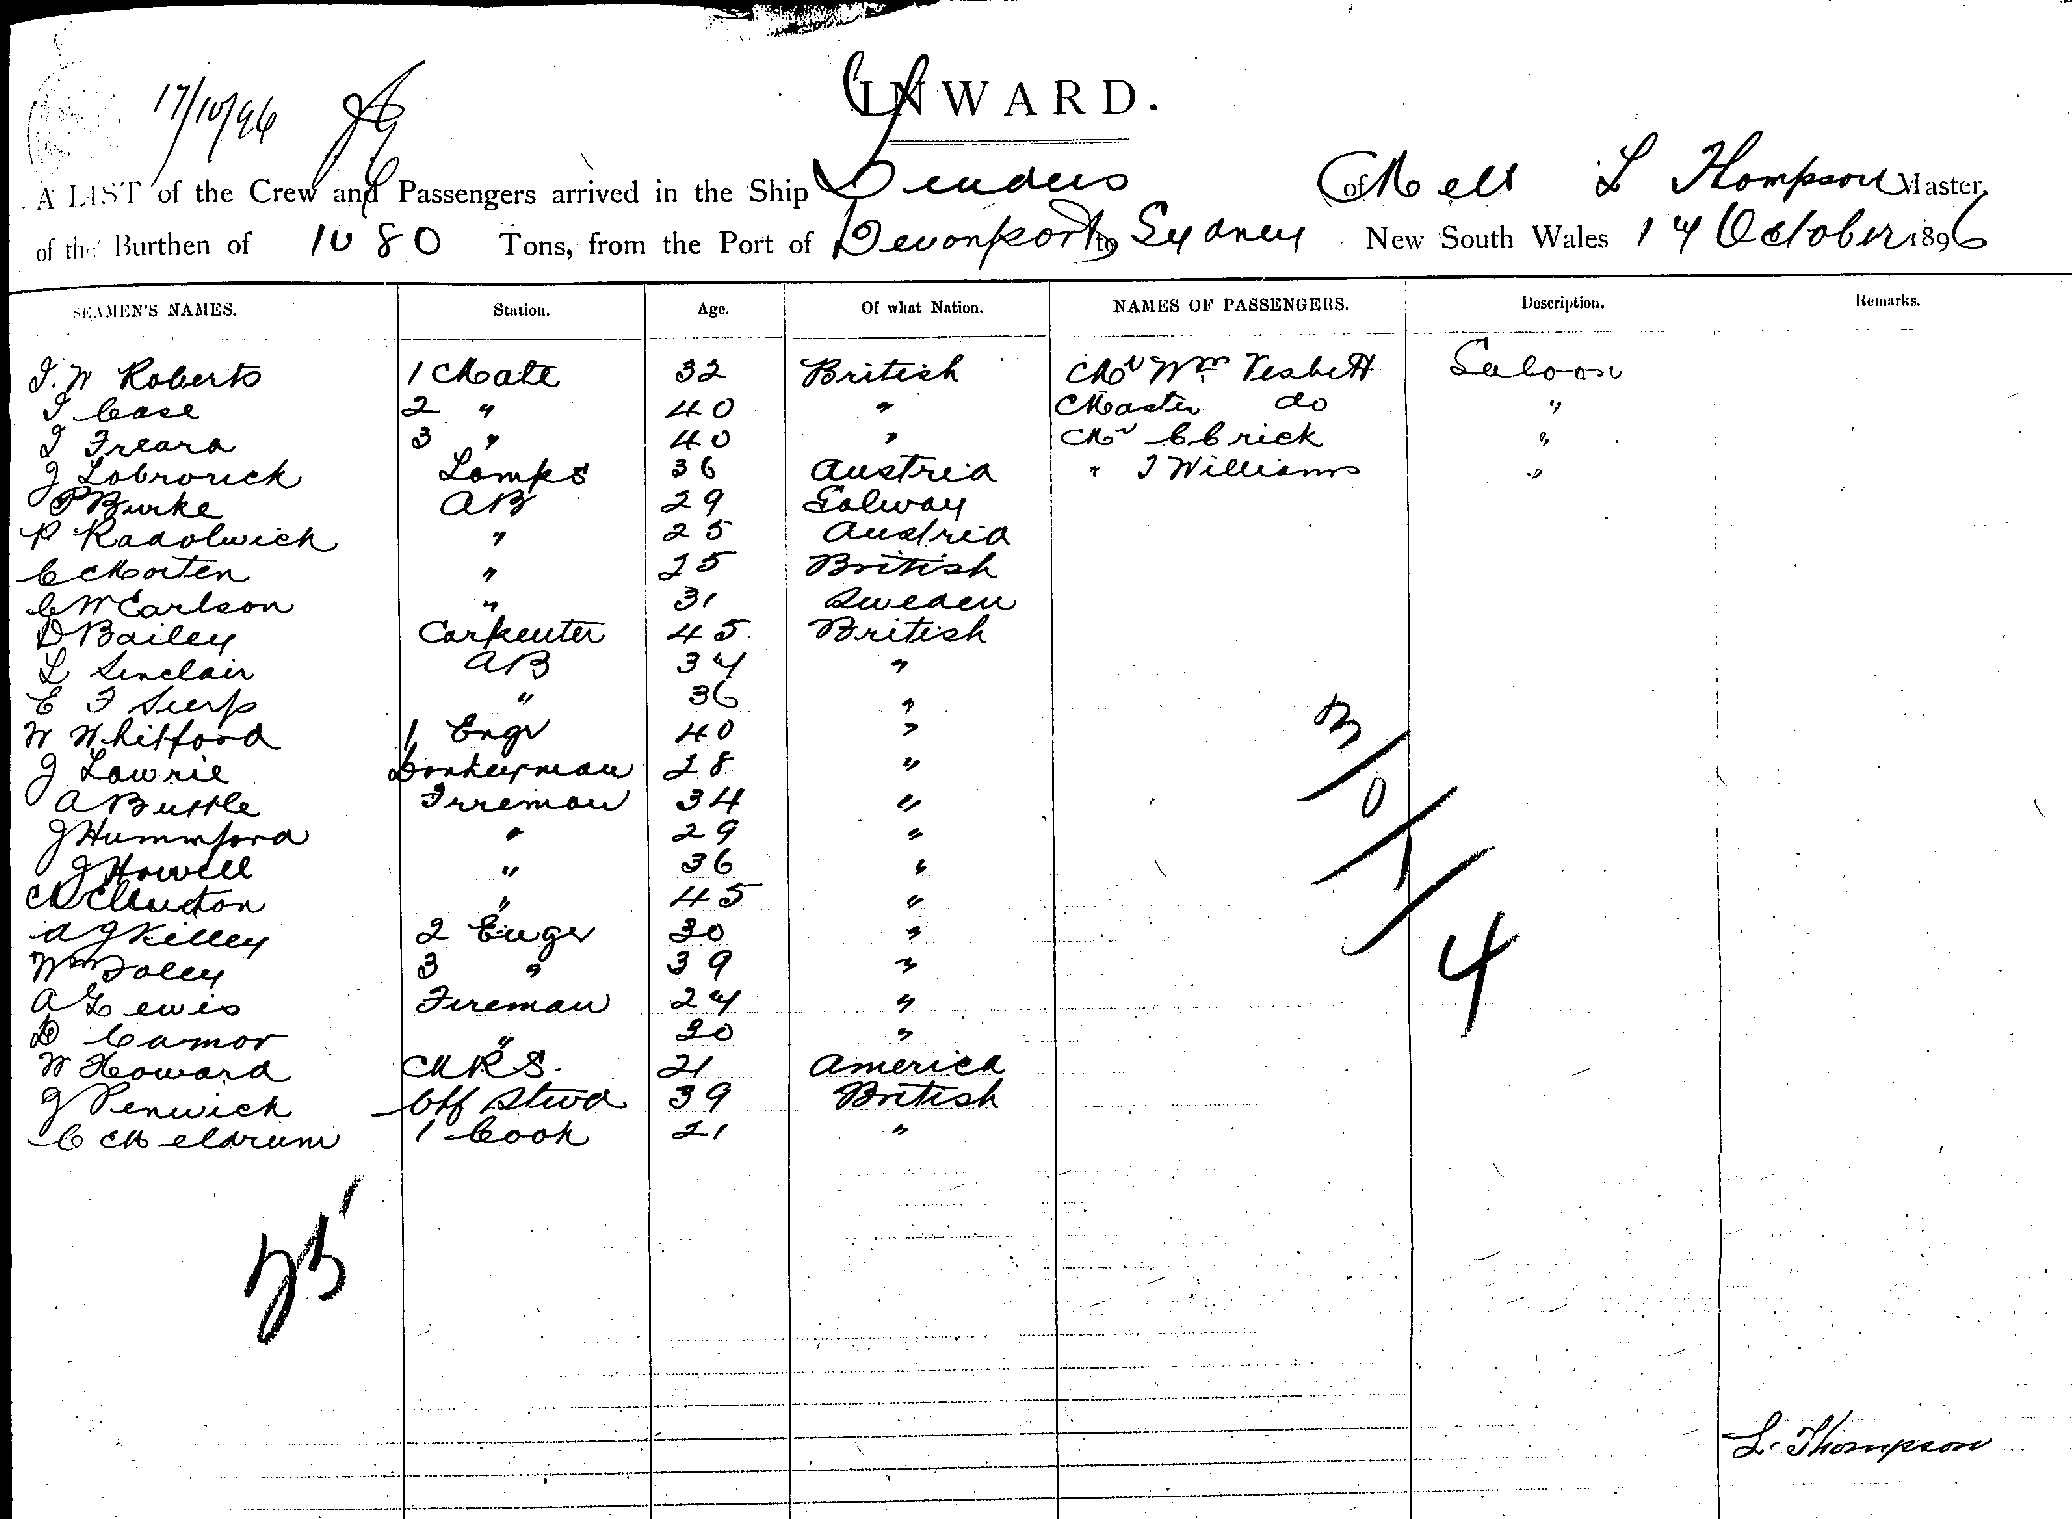 INWARD.
17/10/96
A LIST of the Crew and Passengers arrived in the Ship Flinders of Mell L Thompson Master,
of the Burthen of 1080 Tons, from the Port of Devonport to Sydney New South Wales 14 October 1896
SEAMEN'S NAMES. Station. Age. Of what Nation. NAMES OF PASSENGERS. Description. Remarks.
J. W Roberts 1 Mate 32 British Mr Wm Nesbett Saloon
J Case 2 " 40 " Master do "
J Freara 3 " 40 " Mr C Crick "
J Lobrovick Lamps 36 Austria " J Williams "
P Burke AB 29 Galway
P Radolwich " 25 Austria
C Morten " 25 British
C W Carlson " 31 Sweden
D Bailey Carpenter 45 British
L Sinclair AB 34 "
E F " 36 "
W Whitford 1 Engr 40 "
J Lawrie Donkeyman 28 "
A Buttle Firreman 34 "
J Hummford " 29 "
J Howell " 36 "
" 45 "
A J Killey 2 Enger 30 "
Wm Foley 3 " 39 "
A Lewis Fireman 24 "
D Camor " 30 "
W Howard MRS. 21 America
J Penwick Off Stwd 39 British
C Meldrum 1 Cook 21 "
3/0/1/4
25
L. Thompson